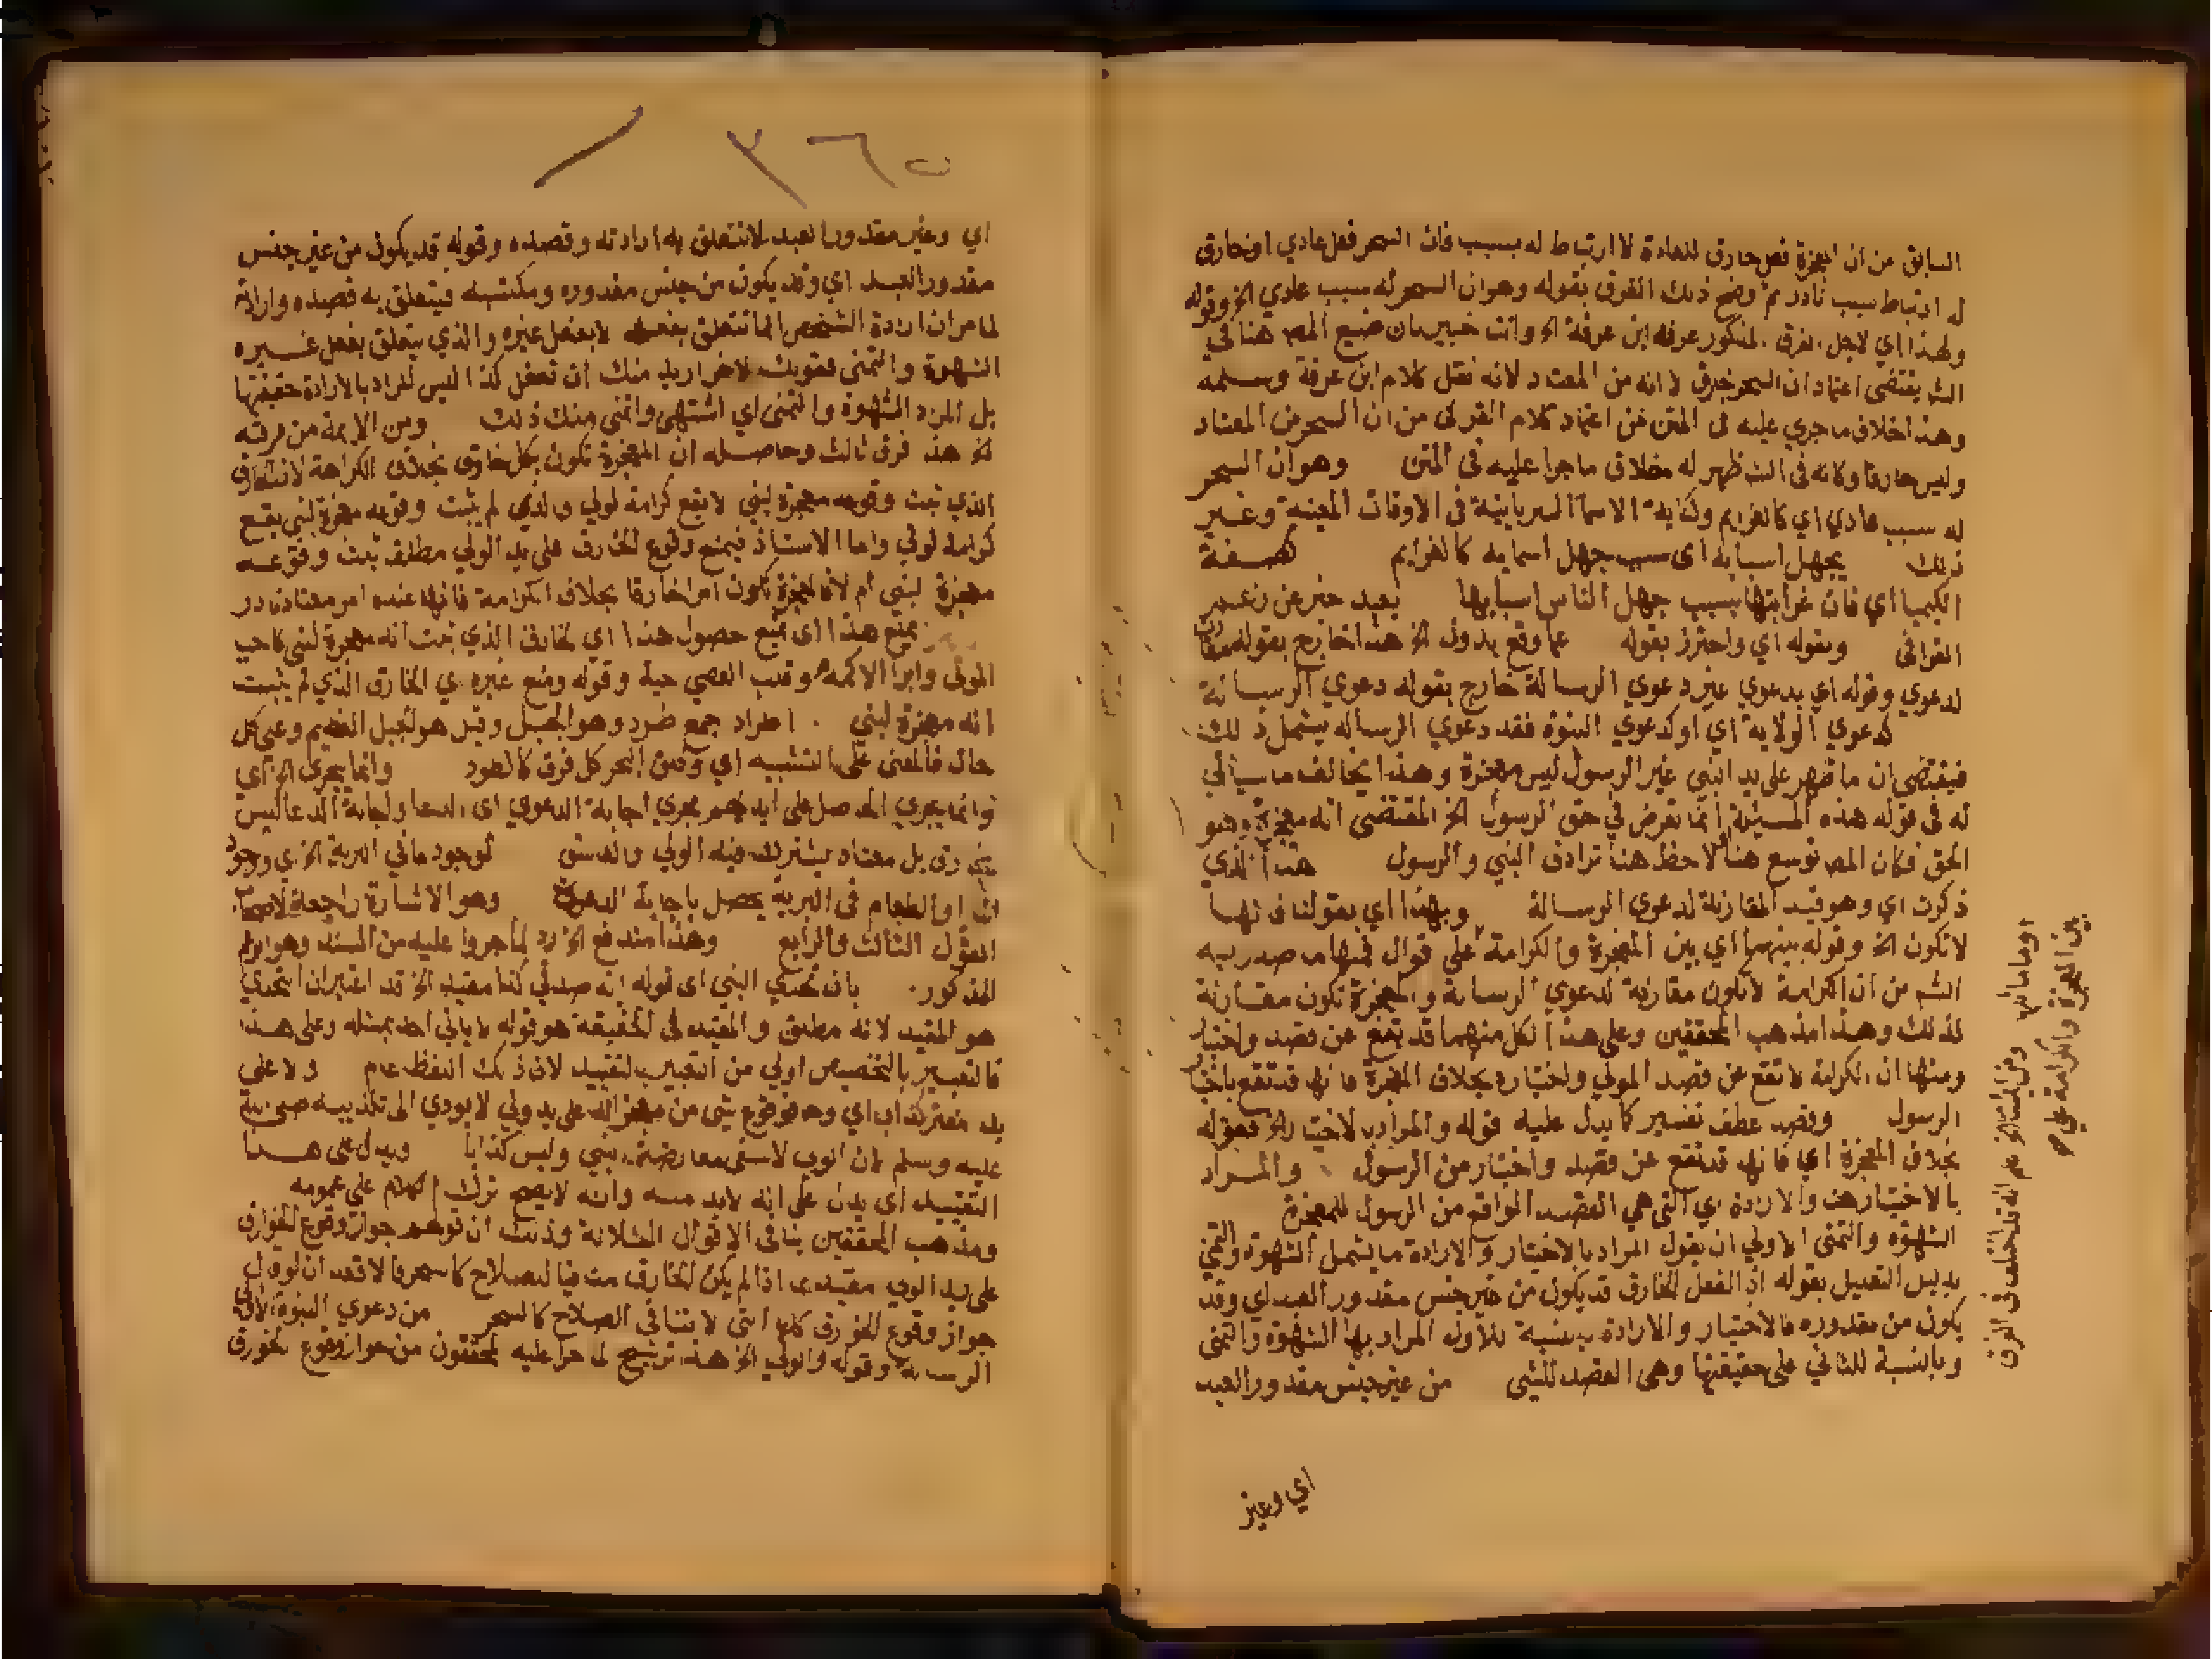 السابق من ان المعجزة فعل خارق للعادة لا ارتباط له بسبب فان السحر فعل عادي او خارق
له ارتباط بسبب نادر ثم وضح ذلك الفرق بقوله وهو ان السحر له سبب عادي الخ وقوله
ولهذا اي لاجل الفرق المذكور عرفه ابن عرفة الخ وانت خبير بان صنيع المص هنا في
الش يقتضي اعتماد ان السحر خارق لا انه من المعتاد لانه نقل كلام ابن عرفة وسلمه
وهذا خلاف ما جري عليه في المتن من اعتماد كلام القرافي من ان السحر من المعتاد
وليس خارقا وكانه في الش ظهر له خلاف ما جرا عليه في المتن وهو ان السحر
له سبب عادي اي كالعزايم وكتابة الاسما السريانية في الاوقات المعينة وغير
ذلك يجهل اسبابه اى سبب جهل اسبابه كالعزايم كصفة
الكيميا اي فان غرابتها بسبب جهل الناس اسبابها بعيد خبر عن زعم
القرافي وبقوله اي واحترز بقوله عما وقع بدون الخ هذا خارج بقوله مقارن
لدعوي وقوله اي بدعوي غير دعوي الرسالة خارج بقوله دعوي الرسالة
كدعوي الولاية اي او كدعوي النبوة فقد دعوي الرساله يشمل ذلك
فيقتضي ان ما ظهر على يد النبي غير الرسول ليس معجزة وهذا يخالف ما سيأتي
له في قوله هذه المسئلة انما تعرض في حق الرسول الخ المقتضي انه معجزة هو
الحق فكان المص توسع هنا ولاحظ هنا ترادف النبي والرسول هذا الذي
ذكرت اي وهو قيد المقارنة لدعوي الرسالة وبهذا اي بقولنا في نهما
لا تكون الخ وقوله بينهما اي بين المعجزة والكرامة على اقوال فمنها ما صدر به
الش من ان الكرامة لا تكون مقارنة لدعوي الرسالة والمعجزة تكون مقارنة
لذلك وهذا مذهب المحققين وعلى هذا لكل منهما قد تقع عن قصد واختيار
ومنها ان الكرامة لا تقع عن قصد الولي واختياره بخلاف المعجزة فانها قد تقع باختيار
الرسول وقصد عطف تفسير كما يدل عليه قوله والمراد بالاختيار الخ فقوله
بخلاف المعجزة اي فانها قد تقع عن قصد واختيار من الرسول والمراد
بالاختيار هنا والارادة اي التي هي القصد الواقع من الرسول للمعجزة
الشهوة والتمني الاولي ان يقول المراد بالاختيار والارادة ما يشمل الشهوة والتمني
بدليل التعليل بقوله اذ الفعل الخارق قد يكون من غير جنس مقدور العبد اي وقد
يكون من مقدوره فالاختيار والارادة بالنسبة للاول المراد بها الشهوة والتمني
وبالنسبة للثاني على حقيقتها وهي القصد للشيء من غير جنس مقدور العبد
اي وغير
وفي المسئالخ علم انه قد اختلف في الفرق
بين المعجزة والكرامة على
٣٦
اي وغير مقدور العبد لا تتعلق به ارادته وقصده وقوله قد يكون من غير جنس
مقدور العبد اي وقد يكون من جنس مقدوره ومكتسبه فيتعلق به قصده وارادته
لما مر ان ارادة الشخص انما تتعلق بفعله لا بفعل غيره والذي يتعلق بفعل غيره
الشهوة والتمني فقولك لاخر اريد منك ان تفعل كذا ليس المراد بالارادة حقيقتها
بل المراد الشهوة والتمني اي اشتهي واتمنى منك ذلك ومن الايمة من فرق
الخ هذا فرق ثالث وحاصله ان المعجزة تكون بكل خارق بخلاف الكرامة لان الخارق
الذي ثبت وقوعه معجزة لنبي لا يقع كرامة لولي والذي لم يثبت وقوعه معجزة لنبي يقع
كرامة لولي واما الاستاذ فيمنع وقوع الخارق على يد الولي مطلقا ثبت وقوعه
معجزة لنبي ام لا فالمعجزة تكون امرا خارقا بخلاف الكرامة فانها عنده امر معتاد نادر
يمنع هذا اى يمنع حصول هذا اي الخارق الذي ثبت انه معجزة لنبي كاحيا
الموتي وابرا الاكمه وقلب العصي حية وقوله ومنع غيره اي الخارق الذي لم يثبت
انه معجزة لنبي اطواد جمع طود وهو الجبل وقيل هو الجبل العظيم وعلى كل
حال فالمعنى على التشبيه اي وكان البحر كل فرق كالطود وانما يجري الخ اى
وانما يجري الحاصل على ايديهم مجري اجابة الدعوي اى الدعا واجابة الدعا ليس
بخارق بل معتاد يشترك فيه الولي والفاسق لوجود ما في البرية الخ اي وجود
الما او الطعام في البرية يحصل باجابة الدعوة وهو الاشارة راجعة لاصحاب
القول الثالث والرابع وهذا مندفع الخ رد لما جروا عليه من المسئلة وهو ايراد
المذكور بان تحدي النبي اى قوله اية صدقي كذا مقيد الخ قد اعتبر ان التحدي
هو المقيد لانه مطلق والمقيد في الحقيقة هو قوله لا ياتي احد بمثله وعلى هذا
فالتعبير بالتخصيص اولي من التعبير بالتقييد لان ذلك اللفظ عام ولا على
يد مفتر كذاب اي وحد فوقوع شي من معجزاته على يد ولي لا يودي الى تكذيبه صلى الله
عليه وسلم لان الولي لا يبتغي معارضة النبي وليس كذابا ويدل على هذا
التقييد اى يدل على انه لا بد منه وانه لا يصح ترك الكلام على عمومه
ومذهب المحققين ينافي الاقوال الثلاثة وذلك ان قولهم جواز وقوع الخوارق
على يد الولي مقيد بما اذا لم يكن الخارق منافيا للصلاح كالسحر فالاقعد ان لو قال
جواز وقوع الخوارق كلها التي لا تنافي الصلاح كالسحر من دعوي النبوة الاولي
الرسالة وقوله والولي الخ هذا ترشيح لما جرا عليه المحققون من جواز وقوع الخوارق